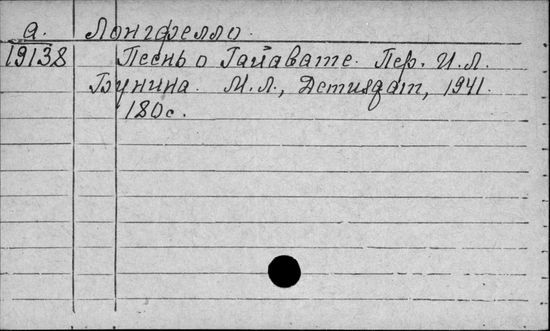 а. Лонгфелло.
19138 Песнь о Гайавате. Пер. И.Л.
Бунина. М.Л., Детиздат, 1941.
180с.